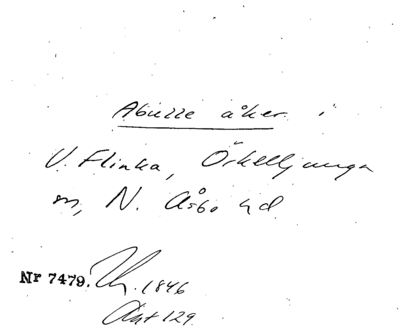 Abulle åker i
V. Flinka, Örkelljunga
sn, N. Åsbo hd
Nr 7479. 1846
Akt 129.